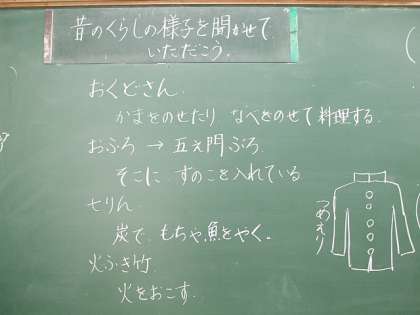 昔のくらしの様子を聞かせて
いただこう。
おくどさん
かまをのせたり なべをのせて料理する。
おふろ → 五ェ門ぶろ
そこに すのこを入れている
七りん
炭で、もちや魚をやく。
火ふき竹
火をおこす。
つめえり